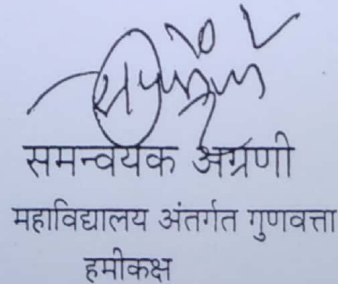 समन्वयक अग्रणी
महाविद्यालय अंतर्गत गुणवत्ता
हमीकक्ष